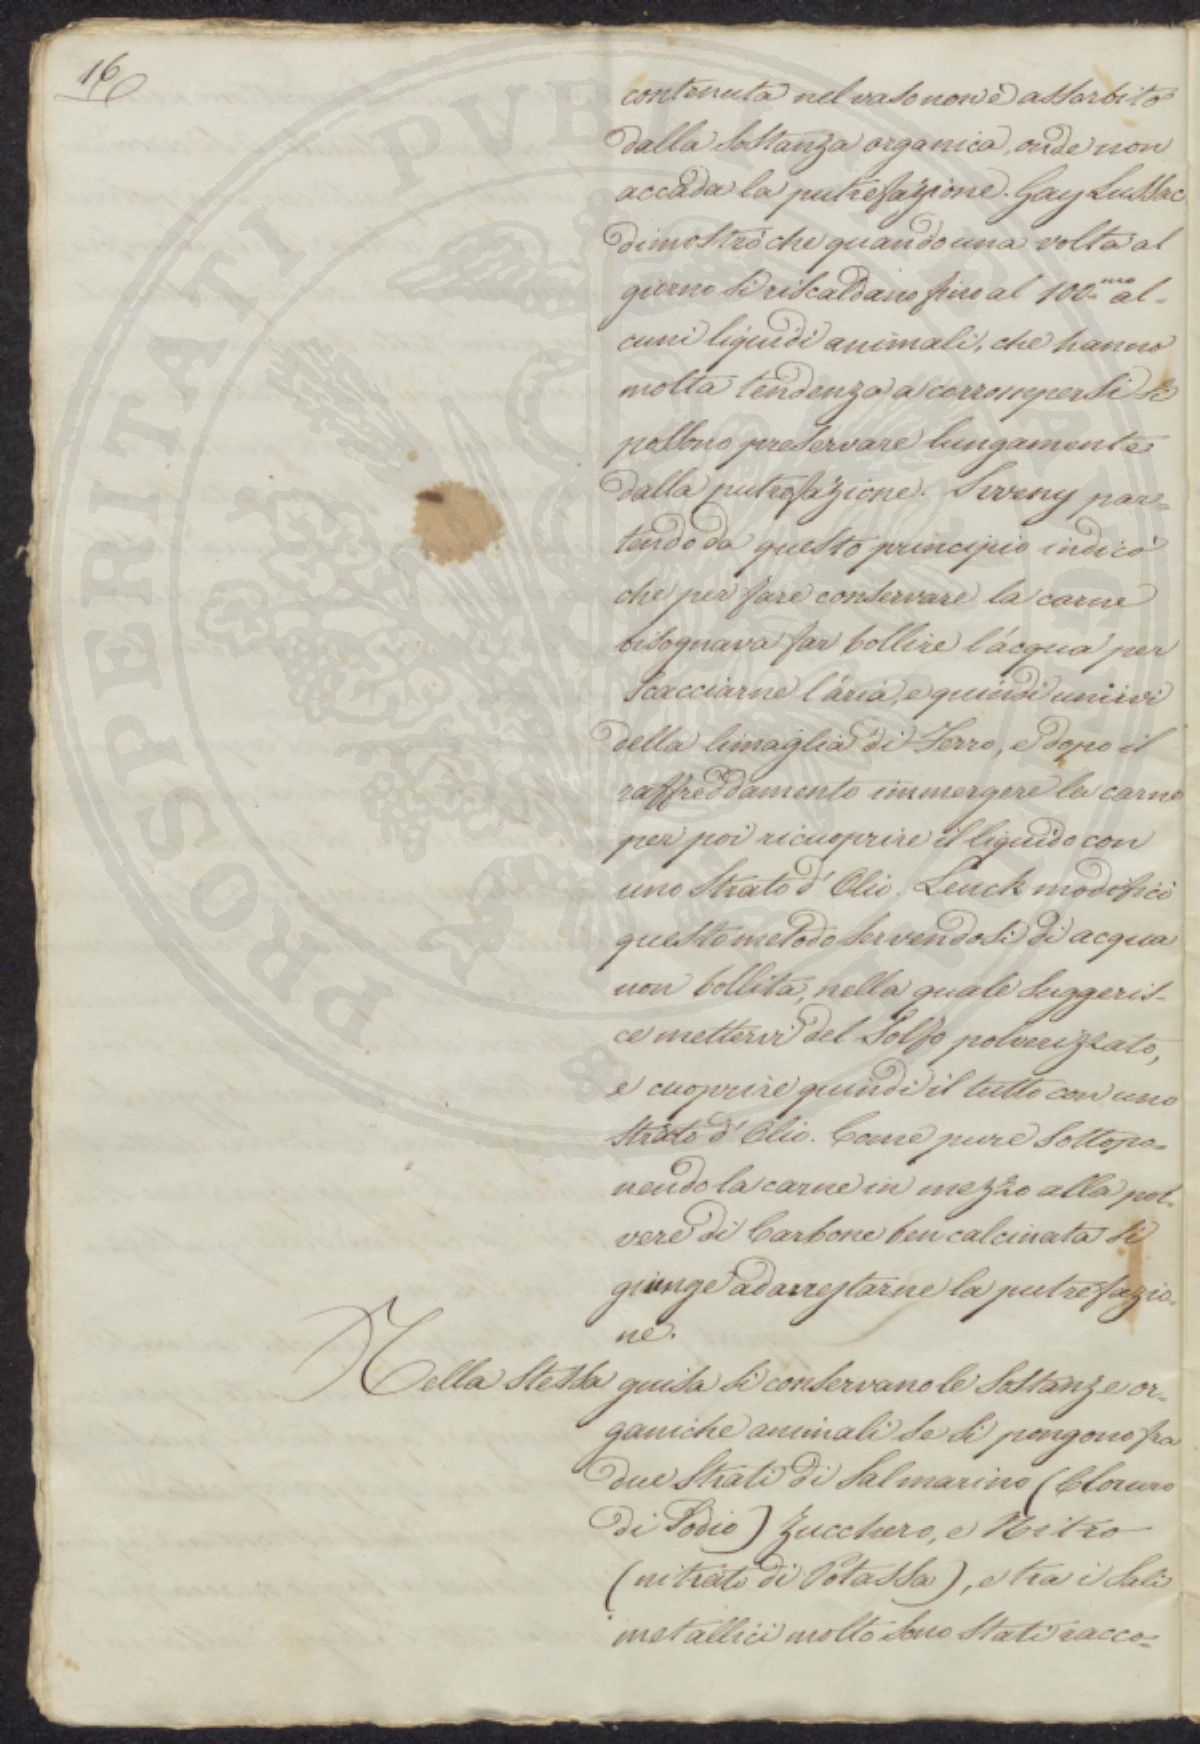 16
contenuta nel vaso non è assorbito
dalla sostanza organica, onde non
accada la putrefazione. Gay Lussac
dimostrò che quando una volta al
giorno si riscaldano fino al 100.mo al-
cuni liquidi animali, che hanno
molta tendenza a corrompersi si
possono preservare lungamente
dalla putrefazione. par=
tendo da questo principio indicò
che per fare conservare la carne
bisognava far bollire l'acqua per
scacciarne l'aria, e quindi unirvi
della limaglia di Ferro, e dopo il
raffreddamento immergere la carne
per poi ricuoprire il liquido con
uno strato d'Olio. Leuck modificò
questo metodo servendosi di acqua
non bollita, nella quale suggeris-
ce mettervi del Solfo polverizzato,
e cuoprire quindi il tutto con uno
strato d'Olio. Come pure sottopo=
nendo la carne in mezzo alla pol-
vere di Carbone ben calcinata si
giunge ad arrestarne la putrefazio-
ne.
Nella stessa guisa si conservano le sostanze or-
ganiche animali se si pongono fra
due strati di Sal marino (Cloruro
di Sodio) Zucchero, e Nitro
(nitrato di Potassa), e tra i sali
metallici molto sono stati racco=
PROSPERITATI PVBLICAE